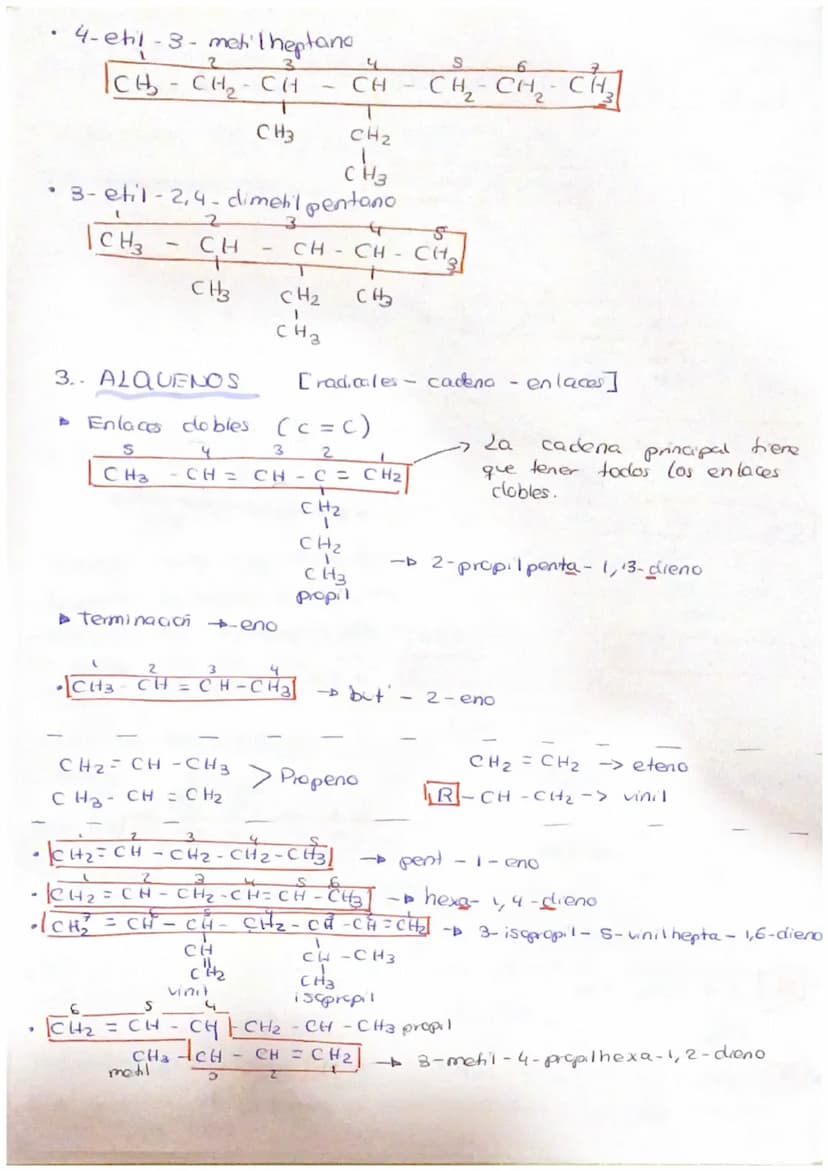 • 4-etil-3-metilheptano
1 2 3 4 5 6 7
CH3 - CH2 - CH - CH - CH2 - CH2 - CH3
CH3 CH2
CH3
• 3-etil-2,4-dimetilpentano
1 2 3 4 5
CH3 - CH - CH - CH - CH3
CH3 CH2 CH3
CH3
3.. ALQUENOS [radicales - cadena - enlaces]
▶ Enlaces dobles (C = C)
5 4 3 2 1
CH3 - CH = CH - C = CH2
→ La cadena principal tiene
que tener todos los enlaces
dobles.
CH2
CH2
CH3 → 2-propilpenta-1,3-dieno
propil
▶ Terminación → -eno
1 2 3 4
• CH3 - CH = CH - CH3 → but - 2-eno
CH2 = CH - CH3 > Propeno
CH3 - CH = CH2
CH2 = CH2 → eteno
R - CH - CH2 -> vinil
1 2 3 4 5
• CH2 = CH - CH2 - CH2 - CH3 → pent - 1-eno
1 2 3 4 5 6
• CH2 = CH - CH2 - CH = CH - CH3 → hexa- 1,4-dieno
• CH2 = CH - CH - CH2 - CH - CH = CH2 → 3-isopropil-5-vinilhepta-1,6-dieno
CH CH - CH3
CH2 CH3
vinil isopropil
6 5 4
• CH2 = CH - CH - CH2 - CH - CH3 propil
CH3 - CH - CH = CH2 → 3-metil-4-propilhexa-1,2-dieno
metil 3 2 1